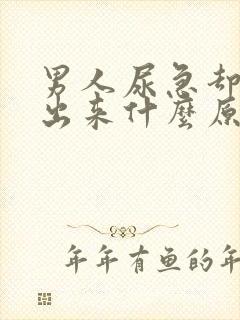 男人尿急却
出来什麼原
年年有鱼的年